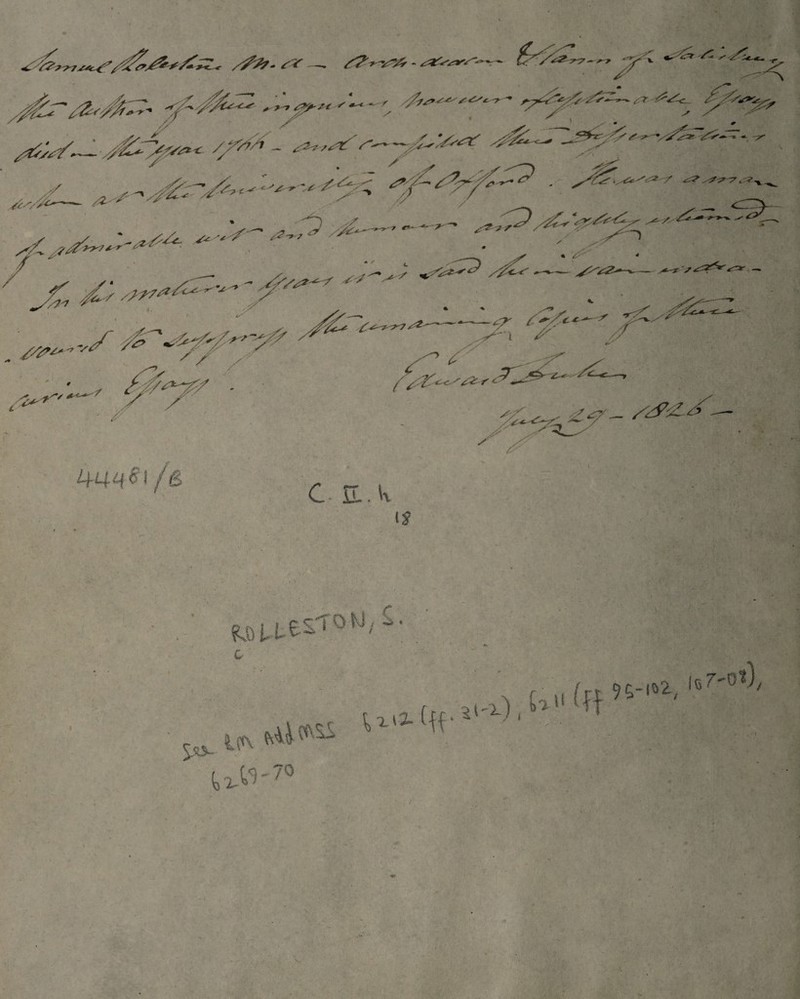 Samuel Rolleston M. A — Arch-deacon & Canon of Salisbury
the Author of these ingenious, however exceptionable, Essays
died in the year 1766 - and compiled these Dissertations
when at the University of Oxford. He was a man
of admirable wit and humour and highly esteemed.
In his maturer years it is said he in vain endea-
voured to suppress the remaining Copies of these
curious Essays.
Edward Duke
July 29 - 1826 —
44481/B
C. II. h
18
ROLLESTON, S.
c
See BM Add MSS 6212 (ff. 31-2), 6211 (ff 95-102, 107-08),
6269-70